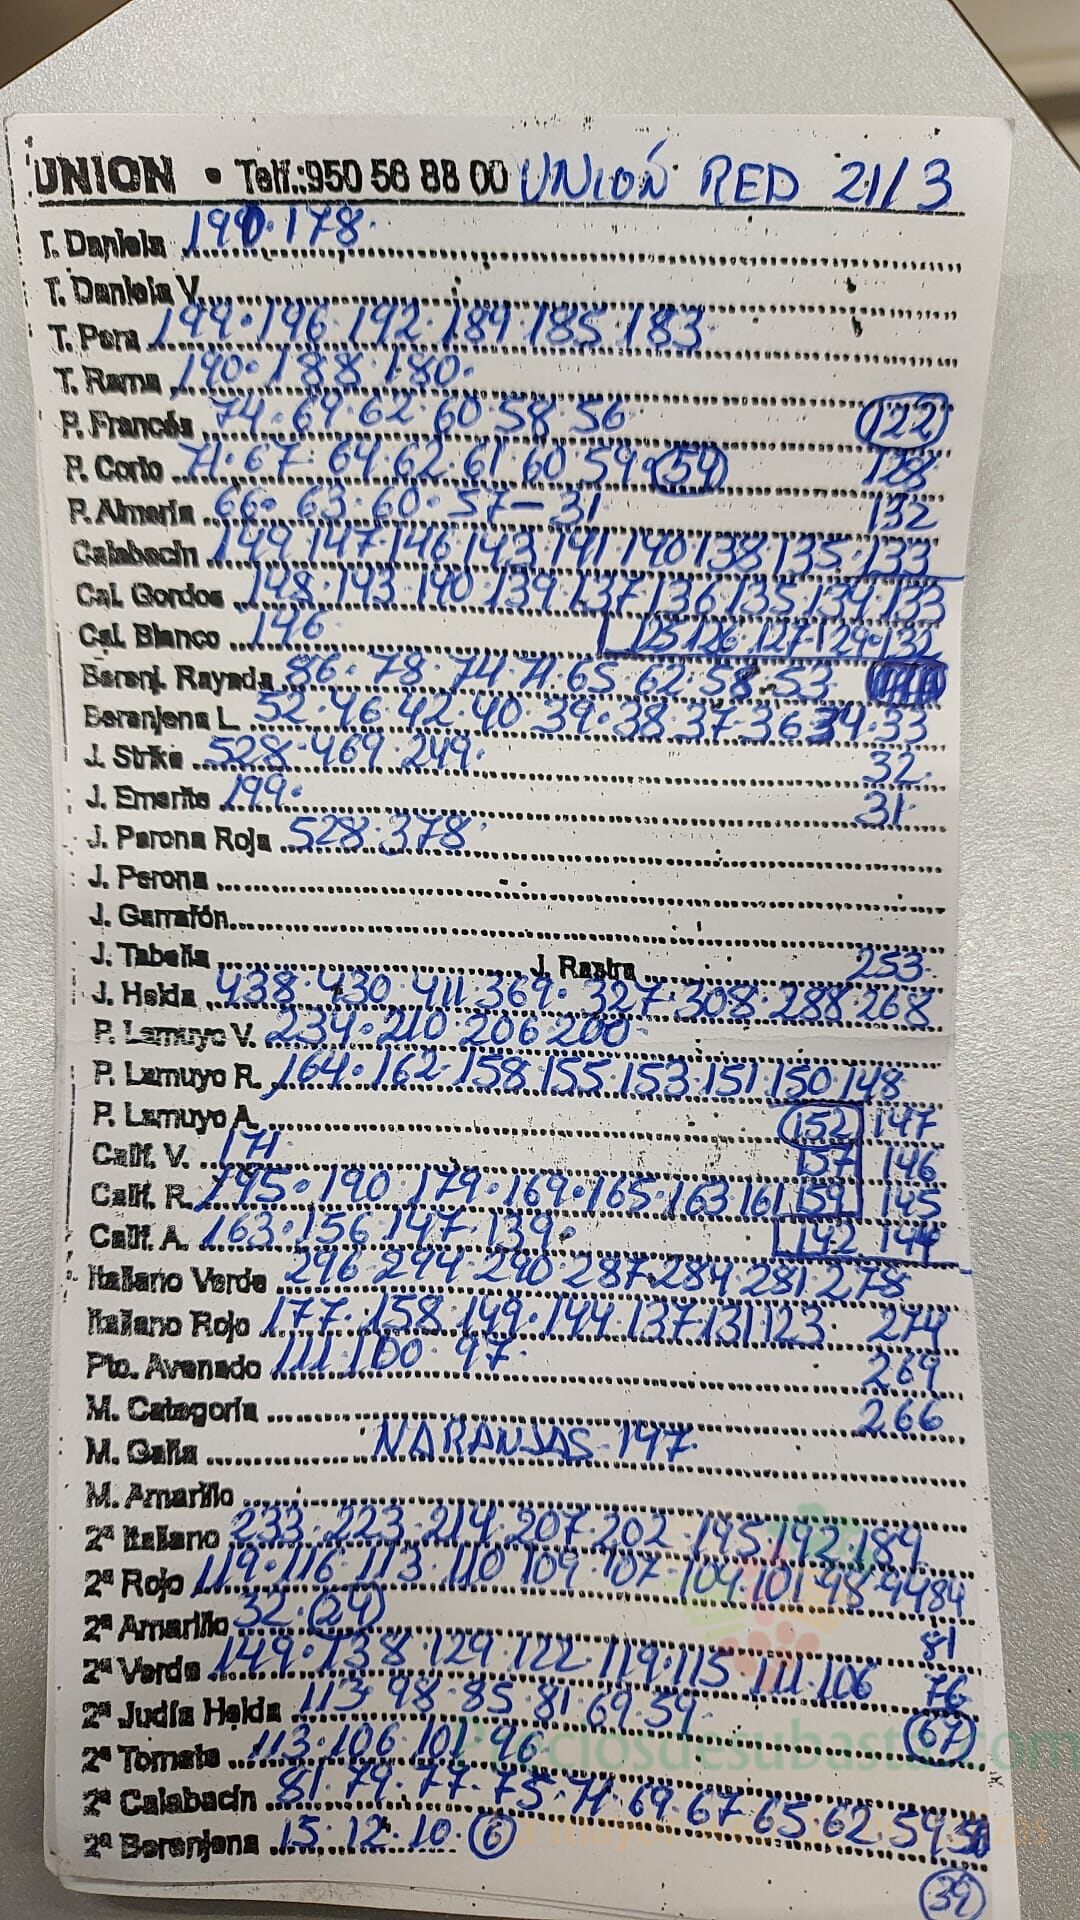 UNION • Telf.:950 56 88 00 UNIÓN RED 21/3
T. Daniela 190·178·
T. Daniela V.
T. Pera 199·196·192·189·185·183
T. Rama 190·188·180·
P. Francés 74·69·62·60·58·56 (122)
P. Corto 71·67·64·62·61·60·59·(54) 128
P. Almería 66·63·60·57-31 132
Calabacín 149 147·146·143·141·140·138·135·133
Cal. Gordos 148·143·140·139·137·136·135·134·133
Cal. Blanco 146 125 126·127·129·132
Berenj. Rayada 86·78·74·71·65·62·58·53
Beranjena L. 52·46·42·40·39·38·37·36 34·33
J. Strike 528·469·249· 32·
J. Emerite 199· 31·
J. Perona Roja 528·378·
J. Perona
J. Garrafón
J. Tabella J. Rastra 253·
J. Helda 438·430·411·369·327·308·288·268
P. Lamuyo V. 234·210·206·200·
P. Lamuyo R. 164·162·158·155·153·151·150·148
P. Lamuyo A. (152) 147
Calif. V. 171 157 146
Calif. R. 195·190·179·169·165·163·161 159 145
Calif. A. 163·156·147·139· 142 144
Italiano Verde 296·294·290·287·284·281·278
Italiano Rojo 177·158·149·144·137·131·123· 274
Pto. Avenado 111·100·97· 269
M. Categoría 266
M. Galia NARANJAS-147·
M. Amarillo
2ª Italiano 233·223·214·207·202·195·192·189
2ª Rojo 119·116·113·110·109·107·104·101·98·94 84
2ª Amarillo 32·(24) 81
2ª Verde 149·138·129·122·119·115·111·106 76
2ª Judía Helda 113·98·85·81·69·59· (67)
2ª Tomate 113·106·101·96
Preciosdesubasta.com
2ª Calabacín 81·79·77·75·71·69·67·65·62·59
2ª Berenjena 15·12·10·(6)
(39)